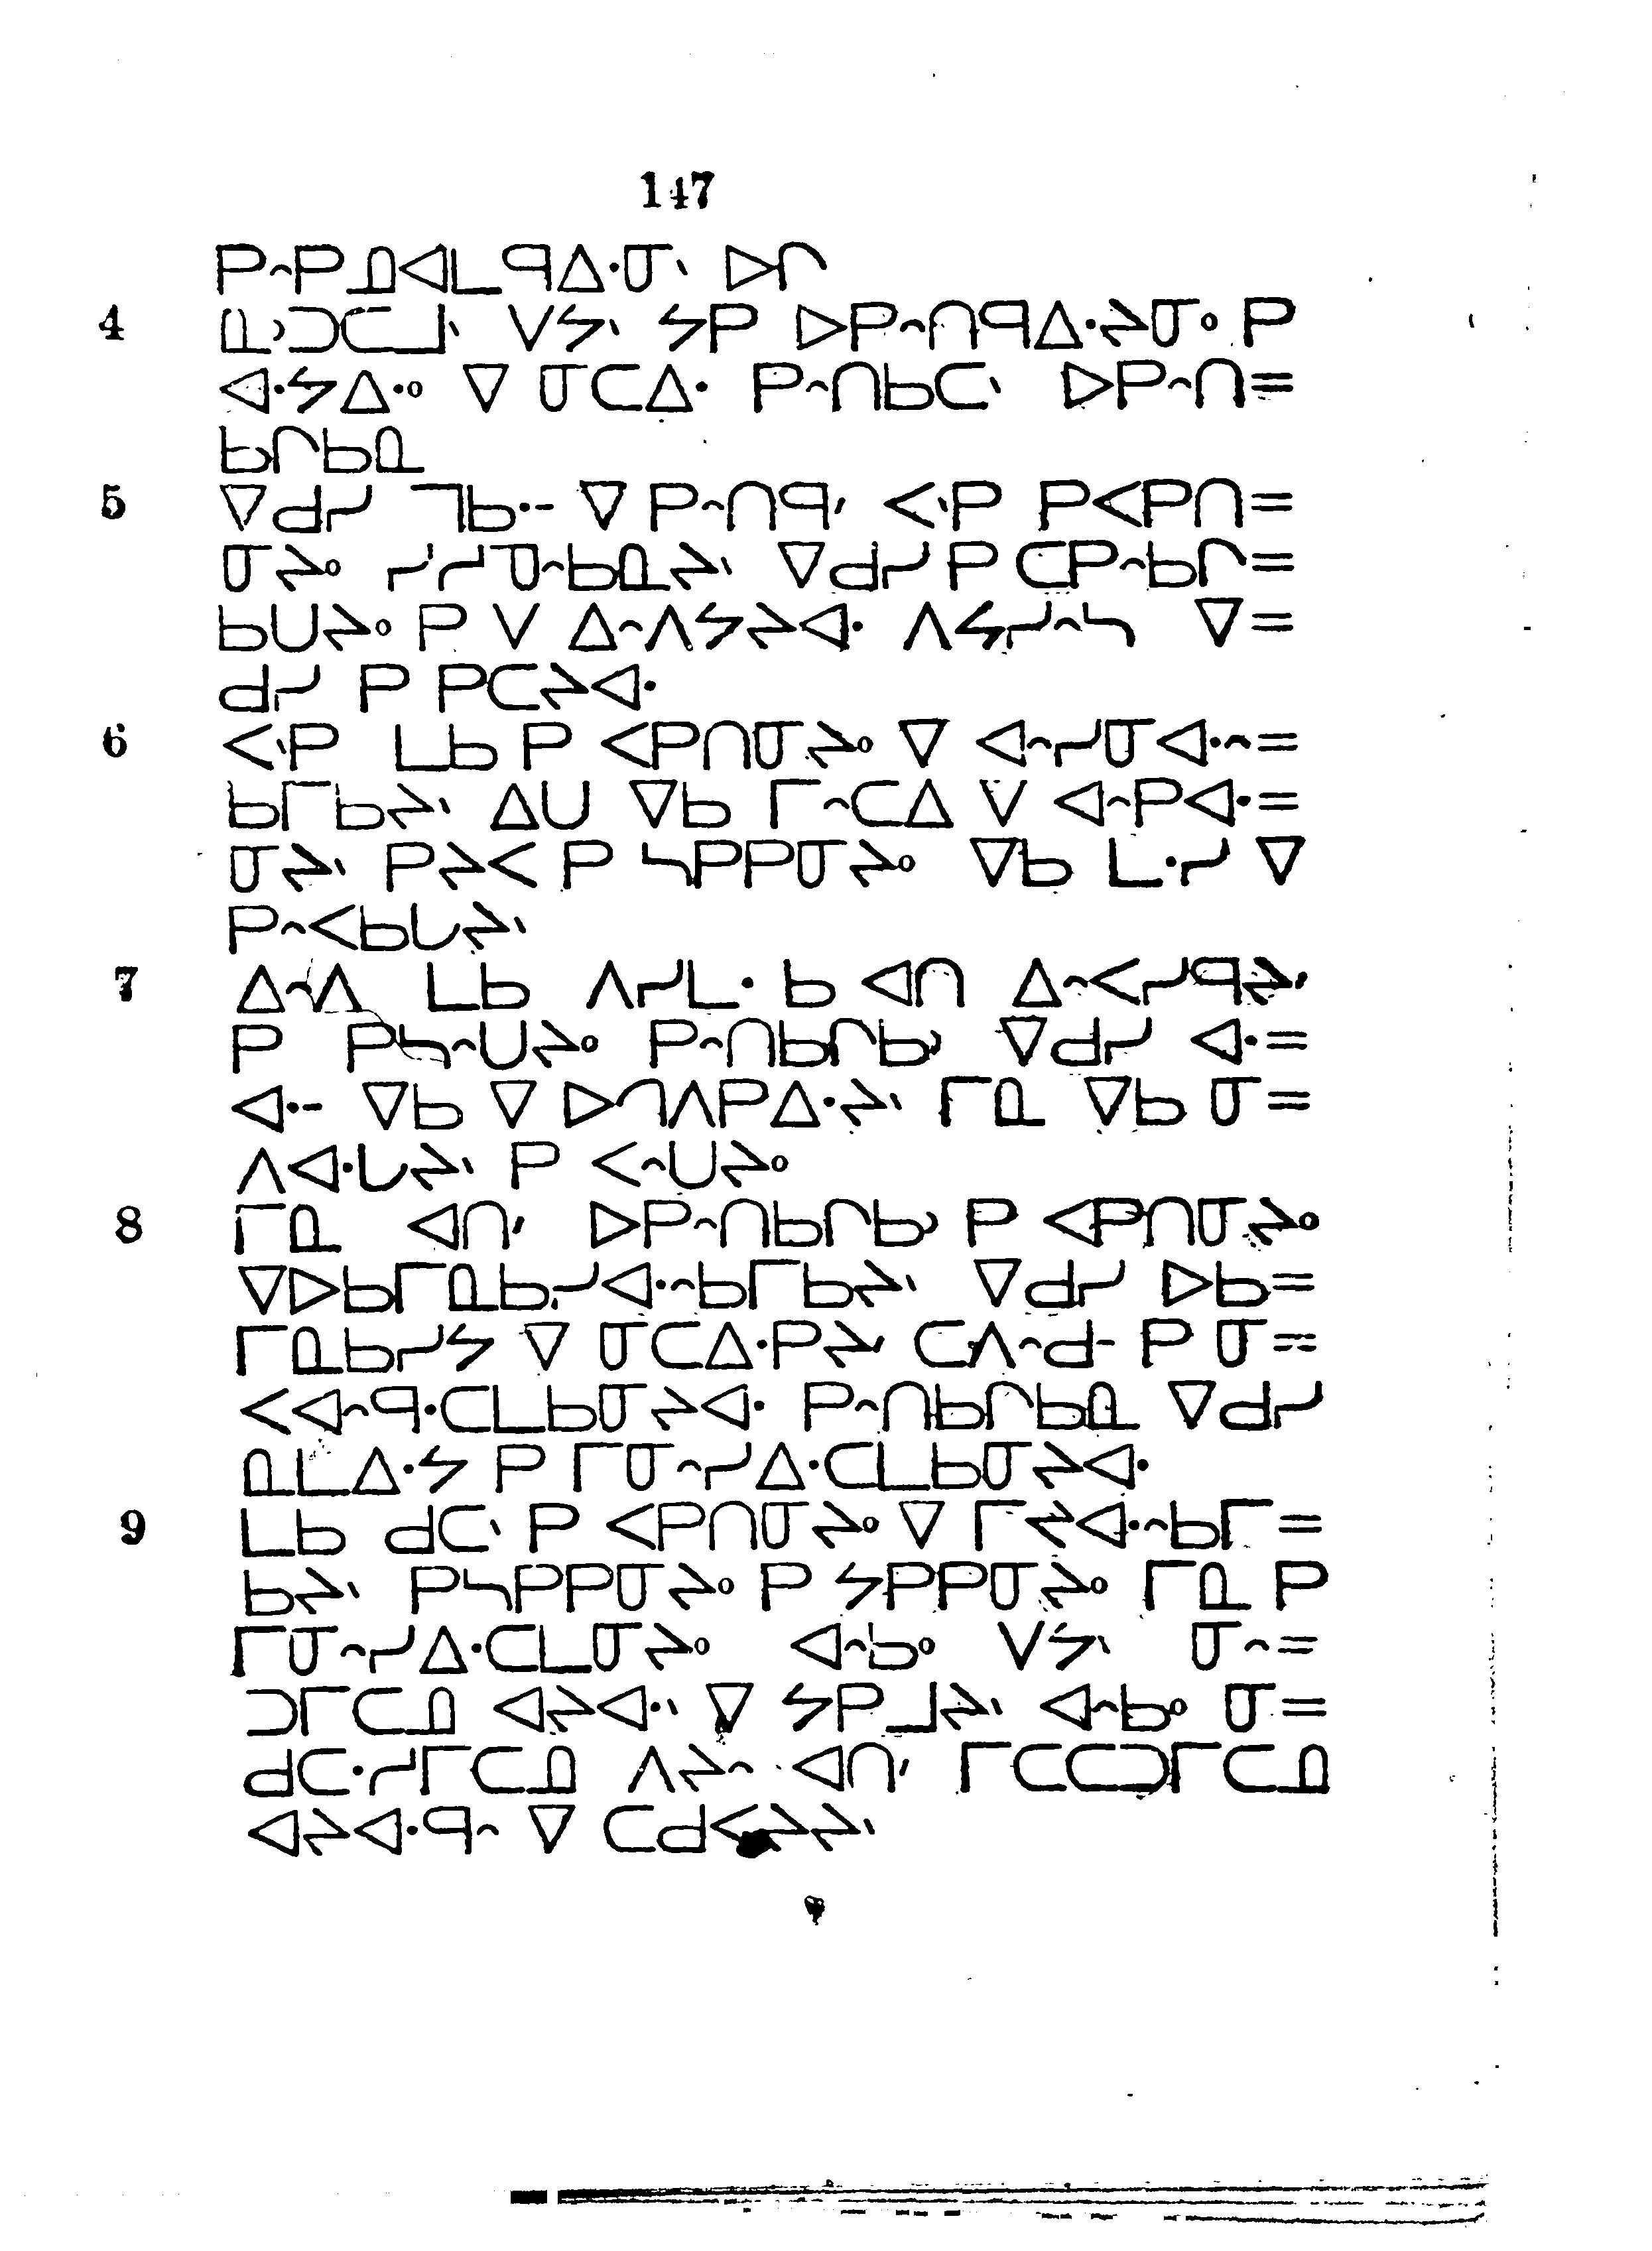 147
ᑭᐢᑭᓄᐊᒪᑫᐃᐧᓂᐠ ᐅᒋ
4 ᓇᐣᑐᑕᒧᐠ ᐯᔭᐠ ᔭᑭ ᐅᑭᐢᑎᑫᐃᐧᔨᓂᐤ ᑭ
ᐊᐧᔭᐃᐧᐤ ᐁ ᓂᑕᐃᐧ ᑭᐢᑎᑲᑕᐠ ᐅᑭᐢᑎ=
ᑲᒋᑲᓇ
5 ᐁᑯᓯ ᒣᑲᐧᐨ ᐁ ᑭᐢᑎᑫᐟ ᐸᐠᑭ ᑭᐸᑭᑎ=
ᓂᔨᐤ ᓯᓯᓀᐢᑲᓇᔨᐠ ᐁᑯᓯ ᑭ ᑕᑭᐢᑲᒋ=
ᑲᑌᔨᐤ ᑭ ᐯ ᐃᐢᐱᔭᔨᐊᐧ ᐱᔭᓯᐢᓴ ᐁ=
ᑯᓯ ᑭ ᑭᑕᔨᐊᐧ
6 ᐸᐠᑭ ᒪᑲ ᑭ ᐸᑭᑎᓂᔨᐤ ᐁ ᐊᐢᓯᓂᐊᐧᐢ=
ᑲᒥᑲᔨᐠ ᐃᑌ ᐁᑲ ᒥᐢᑕᐃ ᐯ ᐊᐢᑭᐊᐧ=
ᓂᔨᐠ ᑭᔨᐸ ᑭ ᓴᑭᑭᓂᔨᐤ ᐁᑲ ᒪᐧᓯ ᐁ
ᑭᐢᐸᑲᒐᔨᐠ
7 ᐃᐢᐱ ᒪᑲ ᐱᓯᒪᐧ ᑲ ᐊᑎ ᐃᐢᐸᓯᑫᔨᐟ
ᑭ ᑭᓴᐢᑌᔨᐤ ᑭᐢᑎᑲᒋᑲᐣ ᐁᑯᓯ ᐊᐧ=
ᐊᐧᐨ ᐁᑲ ᐁ ᐅᒉᐱᑭᐃᐧᔨᐠ ᒥᓇ ᐁᑲ ᓂ=
ᐱᐊᐧᒐᔨᐠ ᑭ ᐸᐢᑌᔨᐤ
8 ᒥᓇ ᐊᑎᐟ ᐅᑭᐢᑎᑲᒋᑲᐣ ᑭ ᐸᑭᑎᓂᔨᐤ
ᐁᐅᑲᒥᓇᑲᓯᐊᐧᐢᑲᒥᑲᔨᐠ ᐁᑯᓯ ᐅᑲ=
ᒥᓇᑲᓯᔭ ᐁ ᓂᑕᐃᐧᑭᔨᐟ ᑕᐱᐢᑯᐨ ᑭ ᓂ=
ᐸᐊᐢᑫᐧᑕᒪᑲᓂᔨᐊᐧ ᑭᐢᑎᑲᒋᑲᓇ ᐁᑯᓯ
ᓇᒪᐃᐧᔭ ᑭ ᒥᓂᐢᓯᐃᐧᑕᒪᑲᓂᔨᐊᐧ
9 ᒪᑲ ᑯᑕᐠ ᑭ ᐸᑭᑎᓂᔨᐤ ᐁ ᒥᔨᐊᐧᐢᑲᒥ=
ᑲᔨᐠ ᑭᓴᑭᑭᓂᔨᐤ ᑭ ᔭᑭᑭᓂᔨᐤ ᒥᓇ ᑭ
ᒥᓂᐢᓯᐃᐧᑕᒪᓂᔨᐤ ᐊᐢᑲᐤ ᐯᔭᐠ ᓂᐢ=
ᑐᒥᑕᓄ ᐊᔨᐊᐧᐠ ᐁ ᔭᑭᒧᔨᐠ ᐊᐢᑲᐤ ᓂ=
ᑯᑕᐧᓯᒥᑕᓄ ᐱᔨᐢ ᐊᑎᐟ ᒥᑕᑕᑐᒥᑕᓄ
ᐊᔨᐊᐧᑫᐢ ᐁ ᑕᑯᐸᔨᔨᐠ